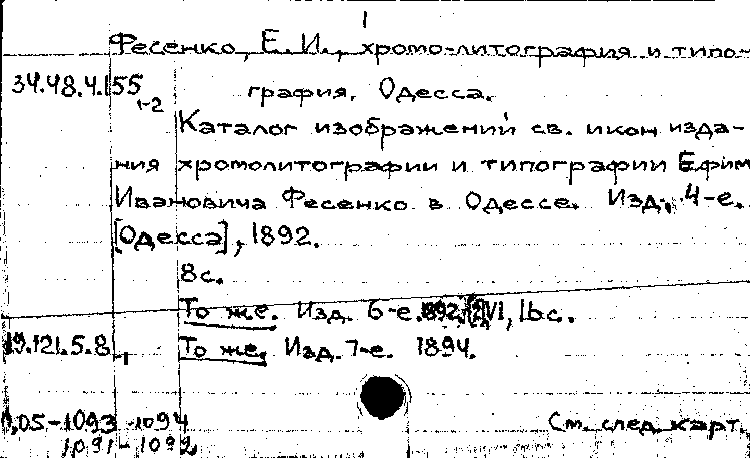 1
Фесенко, Е. И., хромо-литография и типо-
34.48.4.155 графия, Одесса.
1-2
Каталог изображений св. икон изда-
ния хромолитографии и типографии Ефим
Ивановича Фесенко в Одессе. Изд. 4-е.
[Одесса], 1892.
8с.
То же. Изд. 6-е. 892. VI, 16с.
19.121.5.8 То же. Изд. 7-е. 1894.
1
0,05-1093-1094 См. след. карт.
1091-1092